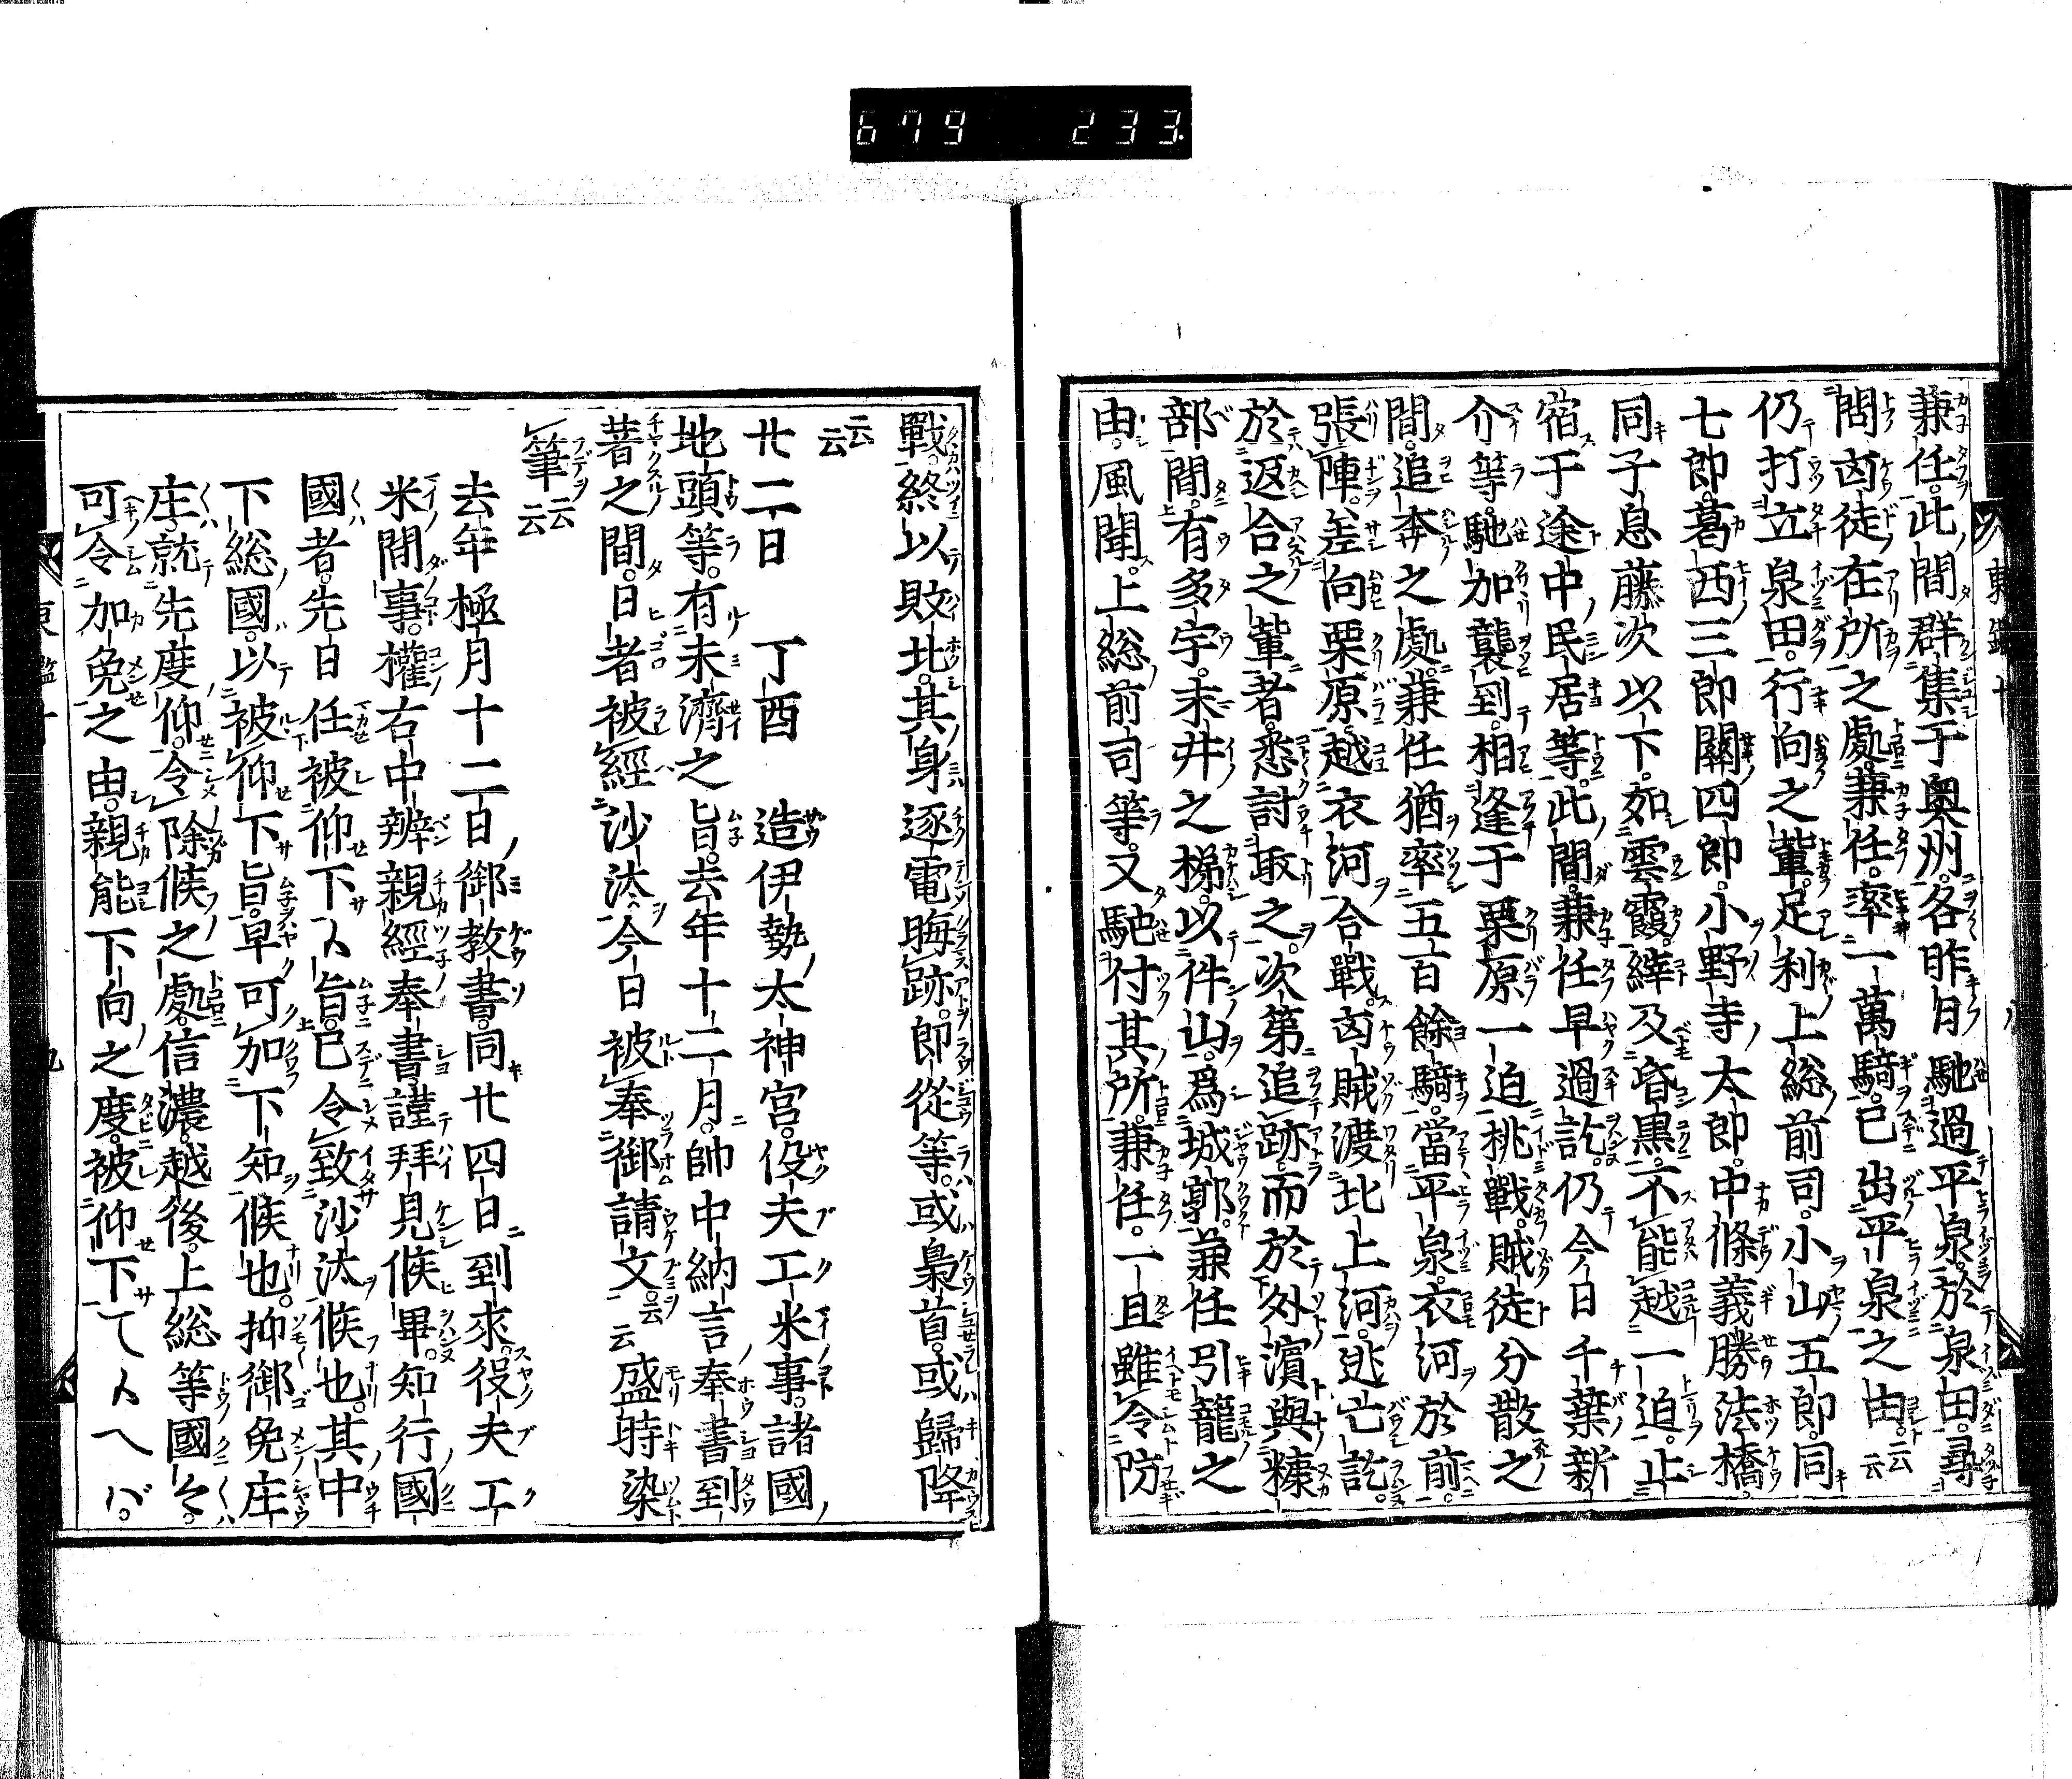 679 233
兼任。此間群集于奥州。各昨日馳過平泉。於泉田。尋
問凶徒在所之處。兼任。率一萬騎。已出平泉之由。云云
仍打立泉田。行向之輩。足利上総前司。小山五郎。同
七郎。葛西三郎。關四郎。小野寺太郎。中條義勝法橋。
同子息藤次以下。如雲霞。繂及昏黒。不能越一迫。止
宿于途中民居等。此間。兼任早過訖。仍今日千葉新
介等。馳加襲到。相逢于栗原一迫挑戰。賊徒分散之
間。追奔之處。兼任猶率五百餘騎。當平泉。衣河於前。
張陣。差向栗原。越衣河合戰。凶賊渡北上河。逃亡訖。
於返合之輩者。悉討取之。次第追跡。而於外濱與糠
部間。有多宇末井之梯。以件山。爲城郭。兼任引籠之
由。風聞。上総前司等。又馳付其所。兼任。一旦雖令防
戰。終以敗北。其身逐電晦跡。即從等。或梟首。或歸降
云云
廿二日 丁酉 造伊勢太神宮。役夫工米事。諸國
地頭等。有未濟之旨。去年十二月。帥中納言奉書到
著之間。日者被經沙汰。今日被奉御請文。云云 盛時染
筆云云
去年極月十二日御教書。同廿四日到來。役夫工
米間事。權右中辨親經奉書。謹拜見候畢。知行國
國者。先日任被仰下旨。已令致沙汰候也。其中
下総國。以被仰下旨。早可加下知候也。抑御免庄
庄。就先度仰。令除候之處。信濃。越後。上総等國々。
可令加免之由。親能下向之度。被仰下て候へバ。